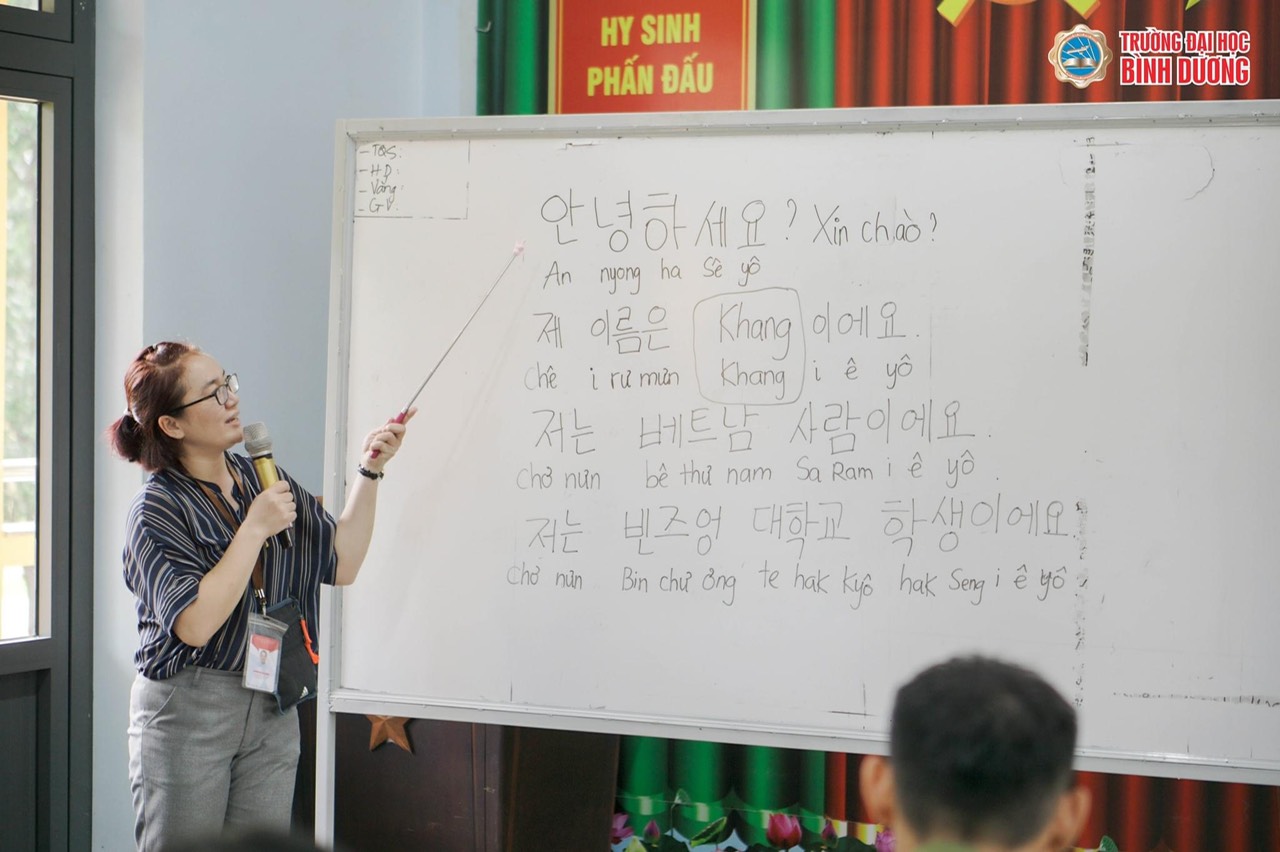 HY SINH
PHẤN ĐẤU
TRƯỜNG ĐẠI HỌC
BÌNH DƯƠNG
- TQS:
- HD:
- Vắng:
- GV:
안녕하세요? Xin chào?
An nyong ha Sê yô
제 이름은 Khang 이에요.
chê i rư mưn Khang i ê yô
저는 베트남 사람이에요.
chơ nưn bê thư nam Sa Ram i ê yô.
저는 빈즈엉 대학교 학생이에요.
chơ nưn Bin chư ơng te hak Kyô hak Seng i ê yô